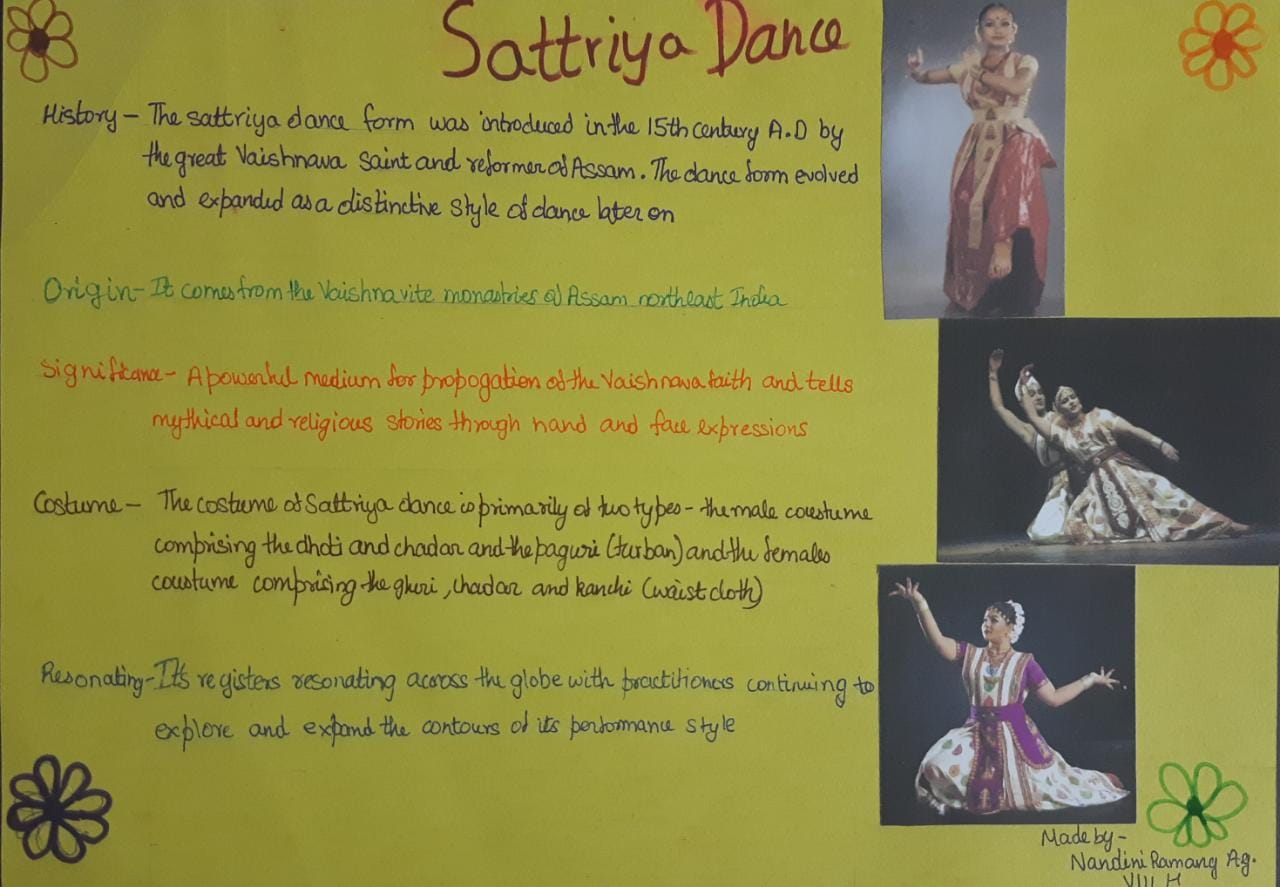 Sattriya Dance
History - The sattriya dance form was introduced in the 15th century A.D by
the great Vaishnava saint and reformer of Assam. The dance form evolved
and expanded as a distinctive style of dance later on
Origin - It comes from the Vaishnavite monastries of Assam northeast India
Significance - A powerful medium for propogation of the Vaishnava faith and tells
mythical and religious stories through hand and face expressions
Costume - The costume of Sattriya dance is primarily of two types - the male coustume
comprising the dhoti and chadar and the paguri (turban) and the females
coustume comprising the ghuri, chadar and kanchi (waist cloth)
Resonating - Its registers resonating across the globe with practitioners continuing to
explore and expand the contours of its performance style
Made by -
Nandini Ramang Ag.
VIII H